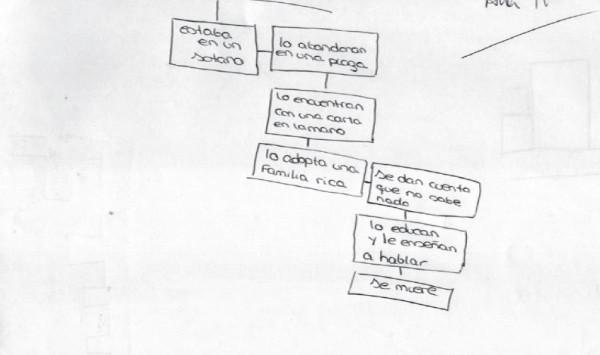 estaba
en un
sotano
lo abandonan
en una plaza
lo encuentran
con una carta
en la mano
lo adopta una
Familia rica
se dan cuenta
que no sabe
nada
lo educan
y le enseñan
a hablar
se muere